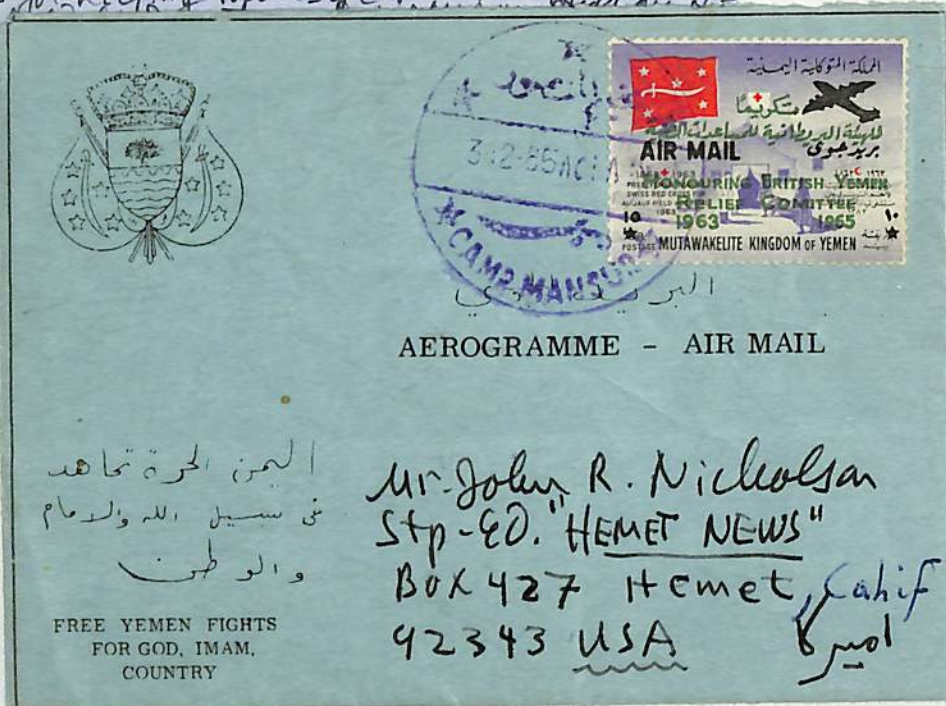 المملكة المتوكلية اليمنية
تكريمًا
للهيئة البريطانية للمساعدات
AIR MAIL
بريد جوى
1963
HONOURING BRITISH YEMEN
RELIEF COMITTEE
1963 1965
15 ١٠
POSTAGE MUTAWAKELITE KINGDOM OF YEMEN
CAMP MANSUR
البريد الجوي
AEROGRAMME - AIR MAIL
اليمن الحرة تجاهد
في سبيل الله والامام
والوطن
FREE YEMEN FIGHTS
FOR GOD, IMAM,
COUNTRY
Mr. John R. Nicholson
Stp-ED. "HEMET NEWS"
BOX 427 Hemet, Calif
92343 USA